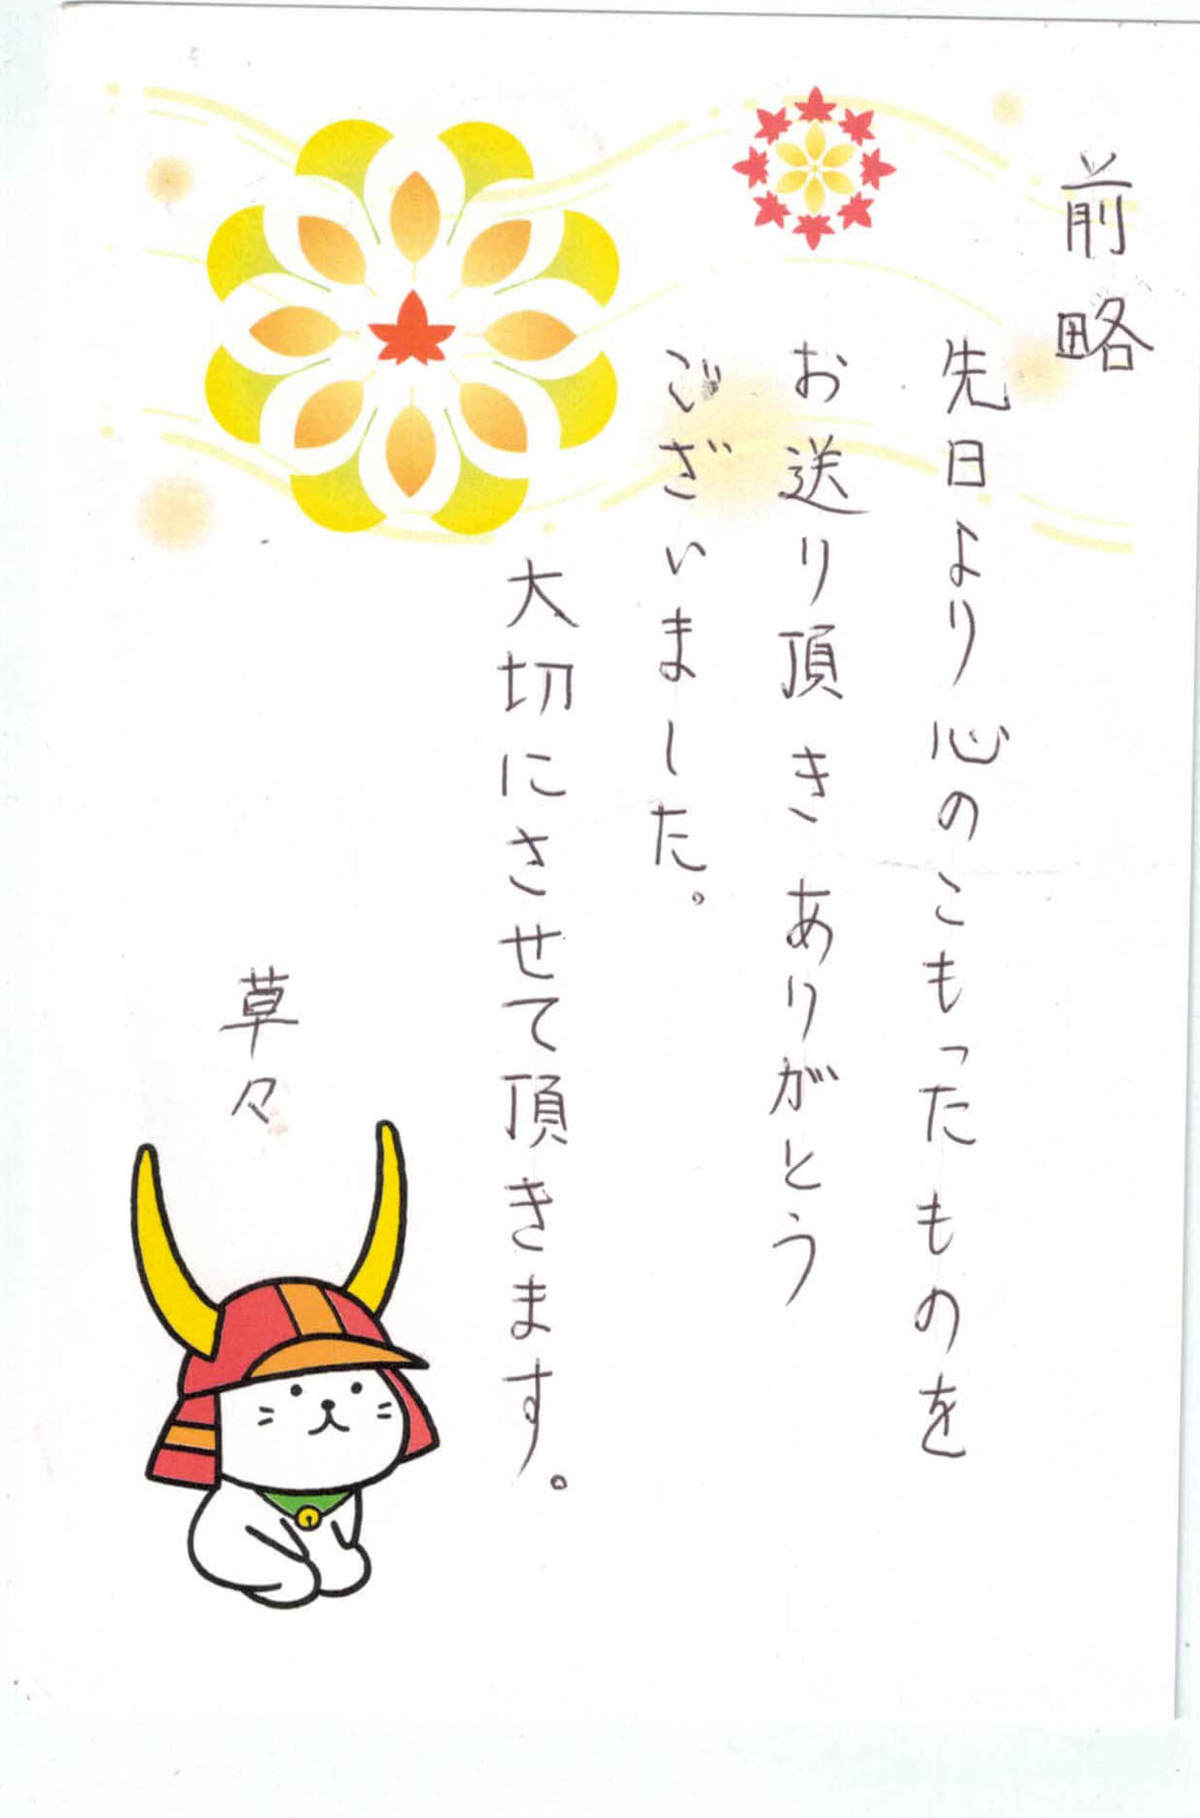 前略
先日より心のこもったものを
お送り頂きありがとう
ございました。
大切にさせて頂きます。
草々